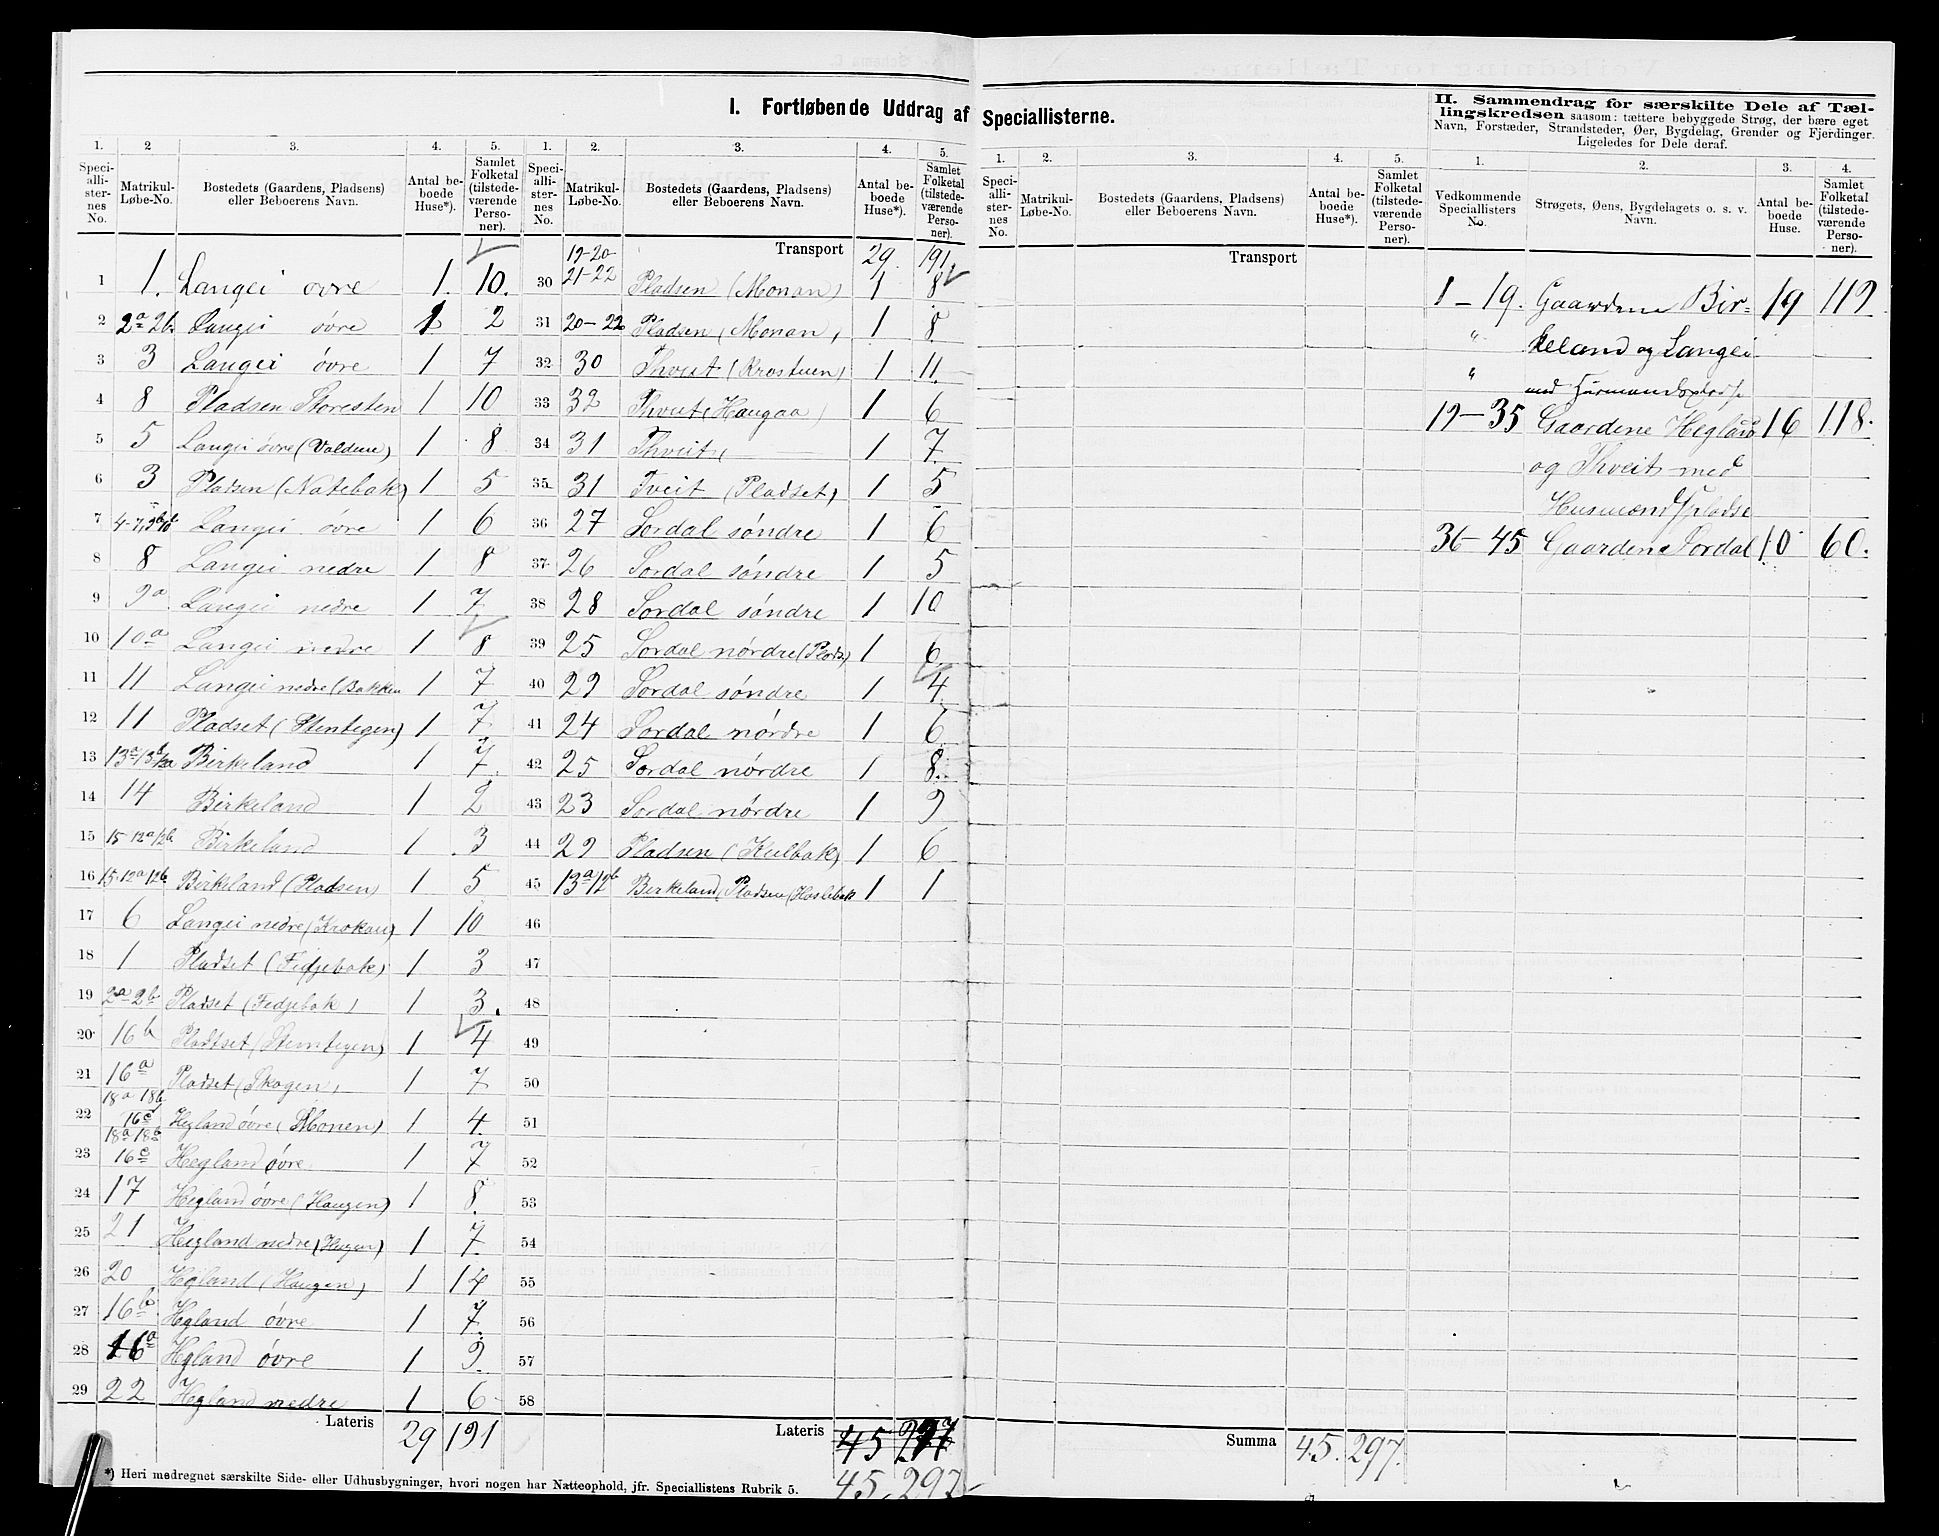 I. Fortløbende Uddrag af Speciallisterne.
II. Sammendrag for særskilte Dele af Tæl-
lingskredsen saasom: tættere bebyggede Strøg, der bære eget
Navn, Forstæder, Strandsteder, Øer, Bygdelag, Grender og Fjerdinger.
Ligeledes for Dele deraf.
1. 2 3. 4. 5. 1. 2. 3. 4. 5. 1. 2. 3. 4. 5. 1. 2. 3. 4.
Speci-alli-ster-nes No. Matrikul-Løbe-No. Bostedets (Gaardens, Pladsens) eller Beboerens Navn. Antal be-boede Huse*). Samlet Folketal (tilstede-værende Perso-ner).
Speci-alli-ster-nes No. Matrikul-Løbe-No. Bostedets (Gaardens, Pladsens) eller Beboerens Navn. Antal be-boede Huse*). Samlet Folketal (tilstede-værende Perso-ner).
Speci-alli-ster-nes No. Matrikul-Løbe-No. Bostedets (Gaardens, Pladsens) eller Beboerens Navn. Antal be-boede Huse*). Samlet Folketal (tilstede-værende Perso-ner).
Vedkommende Speciallisters No. Strøgets, Øens, Bygdelagets o. s. v. Navn. Antal be-boede Huse. Samlet Folketal (tilstede-værende Perso-ner).
1 1. Langei øvre 1. 10.
2 2a 2b. Langei øvre 1 2
3 3 Langei øvre 1 7
4 8 Pladsen Storesten 1 10
5 5 Langei øvre (Valdene) 1 8
6 3 Pladsen (Natebak) 1 5
7 Langei øvre 1 6
8 8 Langei nedre 1 8
9 9a Langei nedre 1 7
10 10a Langei nedre 1 8
11 11 Langei nedre (Bakken 1 7
12 11 Pladset (Stentegen) 1 7
13 Birkeland 1 7
14 14 Birkeland 1 2
15 15 12a 12b Birkeland 1 3
16 15. 12a 12b. Birkeland (Pladsen) 1 5
17 6 Langei nedre (Krokan) 1 10
18 1 Pladset (Fidjebak) 1 3
19 2a 2b Pladset (Fedjebak) 1 3.
20 16b Pladset (Stentegen) 1 4
21 16a Pladset (Skogen) 1 7
22 18a 18b 16c Hegland øvre (Monen) 1 4
23 18a 18b 16c Hegland øvre 1 7
24 17 Hegland øvre (Haugen) 1 8.
25 21 Hegland nedre (Haugen) 1 7
26 20 Hegland (Haugen) 1 14
27 16b Hegland øvre 1 7.
28 16a Hegland øvre 1 9.
29 22 Hegland nedre 1 6
Lateris 29 191
Transport 29. 191.
30 19-20 21-22 Pladsen (Monan) 1 8
31 20-22 Pladsen (Monan) 1 8
32 30 Thveit (Krostuen) 1 11.
33 32 Thveit (Haugaa) 1 6
34 31 Thveit 1 7.
35 31 Tveit (Pladset) 1 5
36 27 Sordal søndre 1 6
37 26 Sordal søndre 1 5
38 28 Sordal søndre 1 10
39 25 Sordal nørdre (Plads) 1 6.
40 29 Sordal søndre 1 4.
41 24 Sordal nørdre 1 6
42 25 Sordal nørdre 1 8.
43 23 Sordal nørdre 1 9
44 29 Pladsen (Kulbak) 1 6
45 13a 12b Birkeland Pladsen (Haslebak 1 1
46
47
48
49
50
51
52
53
54
55
56
57
58
Lateris 45
45. 297
Transport
Summa 45. 297.
1-19. Gaardene Bir= 19 119
" keland og Langei
" med Husmandspladse
19-35 Gaardene Hegland 16 118.
og Thveit med
Husmandspladse
36-45 Gaarden Sordal 10 60.
*) Heri medregnet særskilte Side- eller Udhusbygninger, hvori nogen har Natteophold, jfr. Speciallistens Rubrik 5.